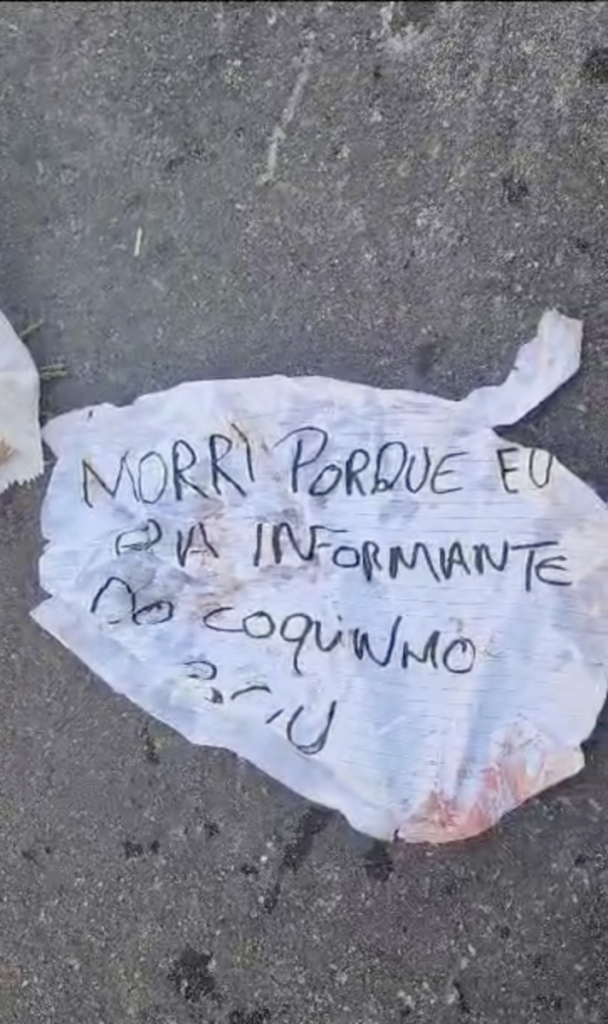 MORRI PORQUE EU
ERA INFORMANTE
DO COQUINHO